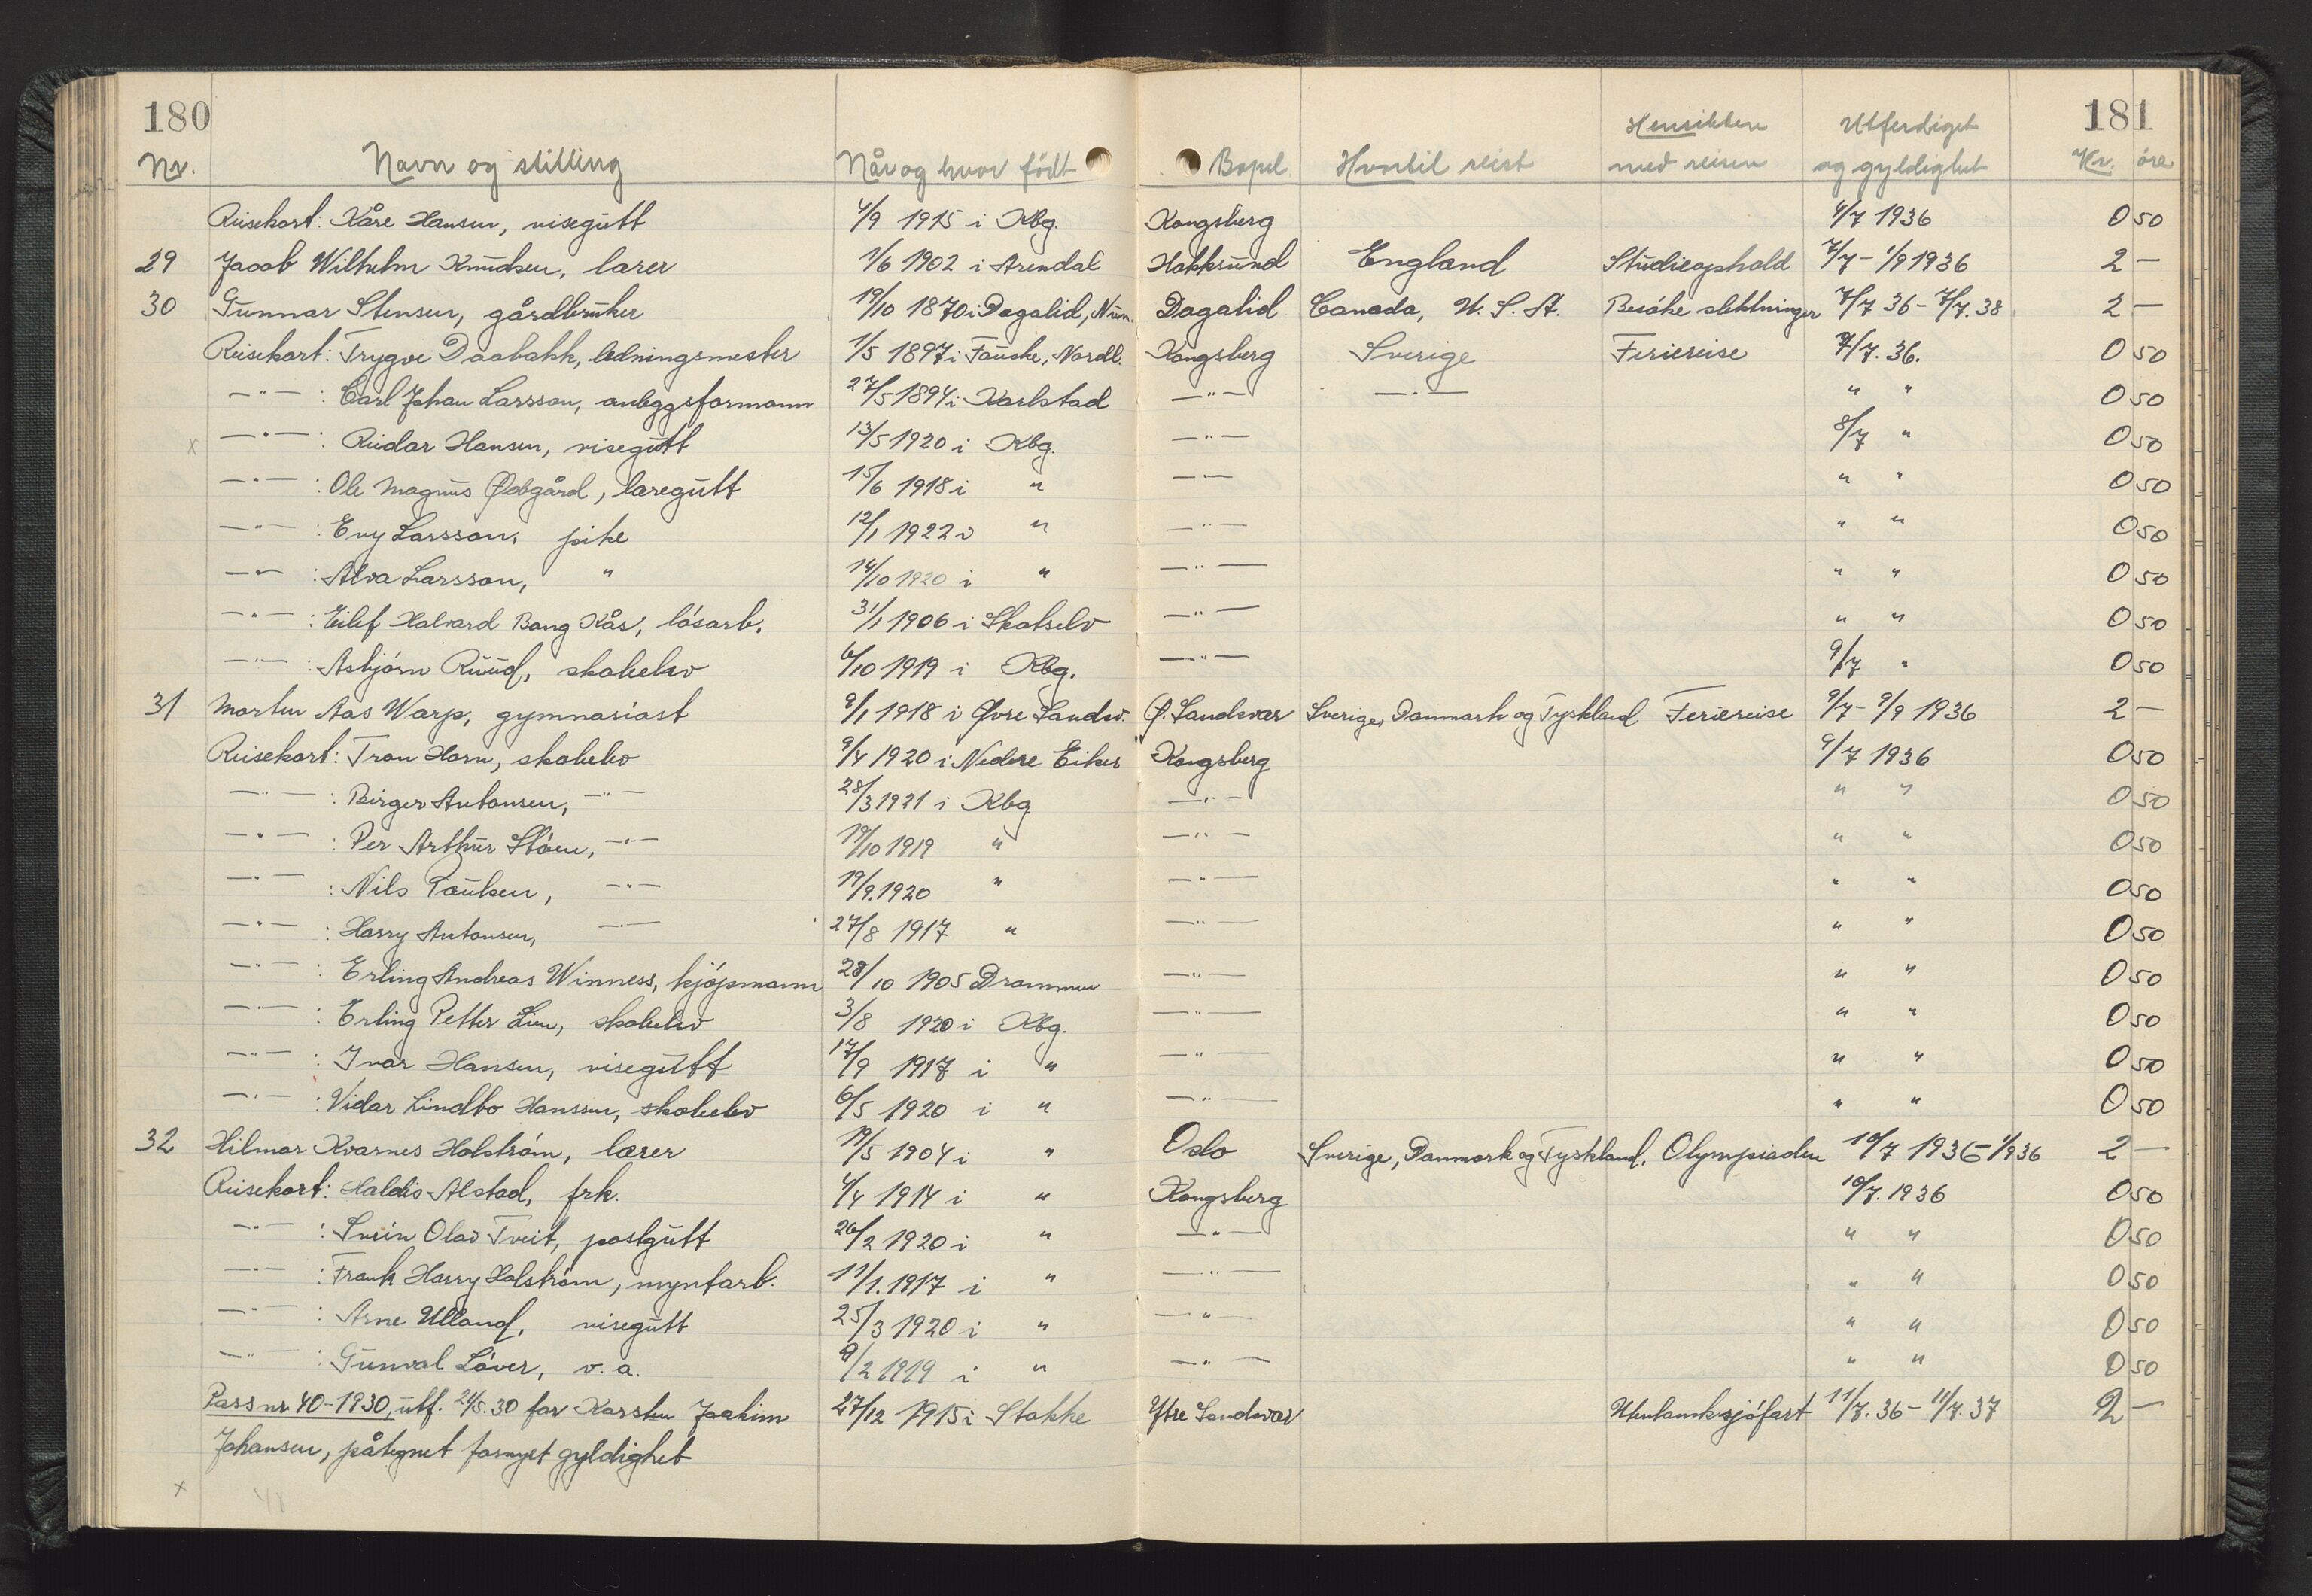 180
181
Hensikten Utferdiget
Nr. Navn og stilling Når og hvor født Bopel. Hvortil reist med reisen og gyldighet Kr. øre
Reisekort: Kåre Hansen, visegutt 4/9 1915 i Kbg. Kongsberg 4/7 1936 0 50
29 Jacob Wilhelm Knudsen, lærer 1/6 1902 i Arendal Hokksund England Studieophold 7/7 - 1/9 1936 2 —
30 Gunnar Stensen, gårdbruker 19/10 1870 i Dagalid, Num. Dagalid Canada, U.S.A. Besøke slektninger 7/7 36 - 7/7. 38 2 —
Reisekort: Trygve Daabakk, ledningsmester 1/5 1897 i Fauske, Nordl. Kongsberg Sverige Feriereise 7/7. 36. 0 50
— " — : Carl Johan Larsson, anleggsformann 27/5 1894 i Karlstad — " — — " — " " 0 50
x — " — : Reidar Hansen, visegutt 13/5 1920 i Kbg. — " — 8/7 " 0 50
— " — : Ole Magnus Ødegård, læregutt 15/6 1918 i " — " — " " 0 50
— " — : Evy Larsson, pike 12/1 1922 i " — " — " " 0 50
— " — : Alva Larsson, " 14/10 1920 i " — " — " " 0 50
— " — : Eilef Halvard Bang Kås, løsarb. 31/1 1906 i Skotselv — " — " " 0 50
— " — : Asbjørn Ruud, skoleelev 6/10 1919 i Kbg. — " — 9/7 " 0 50
31 Morten Aas Warp, gymnasiast 9/1 1918 i Øvre Sandsv. Ø. Sandsvær Sverige, Danmark og Tyskland Feriereise 9/7 - 9/9 1936 2 —
Reisekort: Tron Horn, skoleelev 9/4 1920 i Nedere Eiker Kongsberg 9/7 1936 0 50
— " — : Birger Antonsen, — " — 28/3 1921 i Kbg — " — " " 0 50
— " — : Per Arthur Støen, — " — 19/10 1919 " — " — " " 0 50
— " — : Nils Paulsen, — " — 19/9. 1920 " — " — " " 0 50
— " — : Harry Antonsen, — " — 27/8 1917 " — " — " " 0 50
— " — : Erling Andreas Winness, kjøpmann 28/10 1905 Drammen — " — " " 0 50
— " — : Erling Petter Lien, skoleelev 3/8 1920 i Kbg. — " — " " 0 50
— " — : Ivar Hansen, visegutt 17/9 1917 i " — " — " " 0 50
— " — : Vidar Lindbo Hanssen, skoleelev 6/5 1920 i " — " — " " 0 50
32 Hilmar Kvarnes Holstrøm, lærer 19/5 1904 i " Oslo Sverige, Danmark og Tyskland. Olympiaden 10/7 1936 - 1/9 36 2 —
Reisekort: Haldis Alstad, frk. 4/4 1914 i " Kongsberg 10/7. 1936 0 50
— " — : Svein Olav Tveit, postgutt 26/2 1920 i " — " — " " 0 50
— " — : Frank Harry Holstrøm, myntarb. 11/1. 1917 i " — " — " " 0 50
— " — : Arne Ulland, visegutt 25/3 1920 i " — " — " " 0 50
— " — : Gunval Løver, v. a. 9/2 1919 i " — " — " " 0 50
Pass nr 40 - 1930, utf. 21/5. 30 for Karsten Joakim 27/12 1915 i Stokke Ytre Sandsvær Utenlansksjøfart 11/7. 36 - 11/7. 37 2 —
Johansen, påtegnet fornyet gyldighet
x